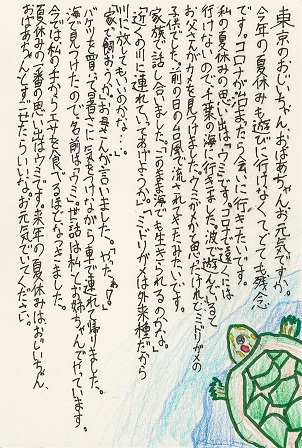 東京のおじいちゃん、おばあちゃんお元気ですか。
今年の夏休みも遊びに行けなくてとても残念
です。コロナが治まったら会いに行きたいです。
私の夏休みの思い出は「ウミ」です。コロナで遠くには
行けないので、千葉の海に行きました。波で遊んでいると
お父さんがカメを見つけました。ウミガメかと思ったけれどミドリガメの
子供でした。前の日の台風で流されてきたみたいです。
家族で話し合いました。「このまま海でも生きられるのかな。」
「近くの川に連れていってあげようか。」「ミドリガメは外来種だから
川に放してもいいのかな…。」
「家で飼おうか。」お母さんが言いました。やったぁ♡
バケツを買って暑さに気をつけながら車で連れて帰りました。
海で見つけたので名前は「ウミ」。世話は私とお姉ちゃんでやっています。
今では私の手からエサを食べるほどなつきました。
夏休みの一番の思い出はウミです。来年の夏休みは、おじいちゃん、
おばあちゃんとすごせたらいいな。お元気でいてください。